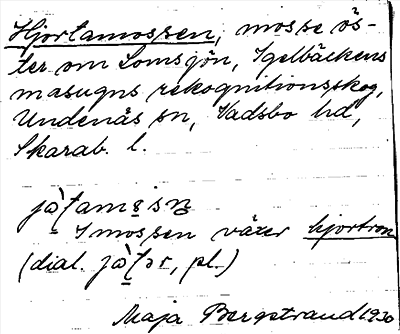 Hjortamossen, mosse ös-
ter om Lomsjön, Igelbäckens
masugns rekognitionsskog,
Undenäs sn, Vadsbo hd,
Skarab. l.
I mossen växer hjortron
(dial. pl.)
Maja Bergstrand 1930